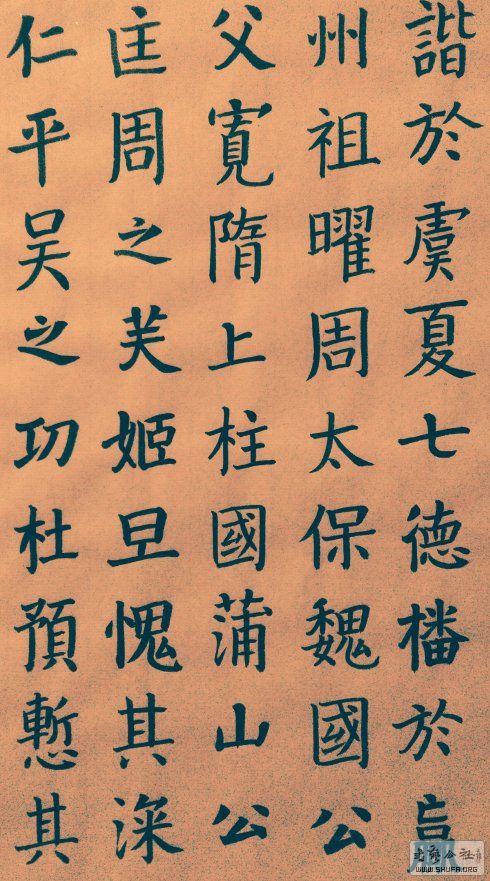 諧於虞夏七德橎於
州祖曜周太保魏國公
父寬隋上柱國蒲山公
匡周之美姬旦愧其深
仁平吴之功杜預慙其
WWW.SHUFA.ORG